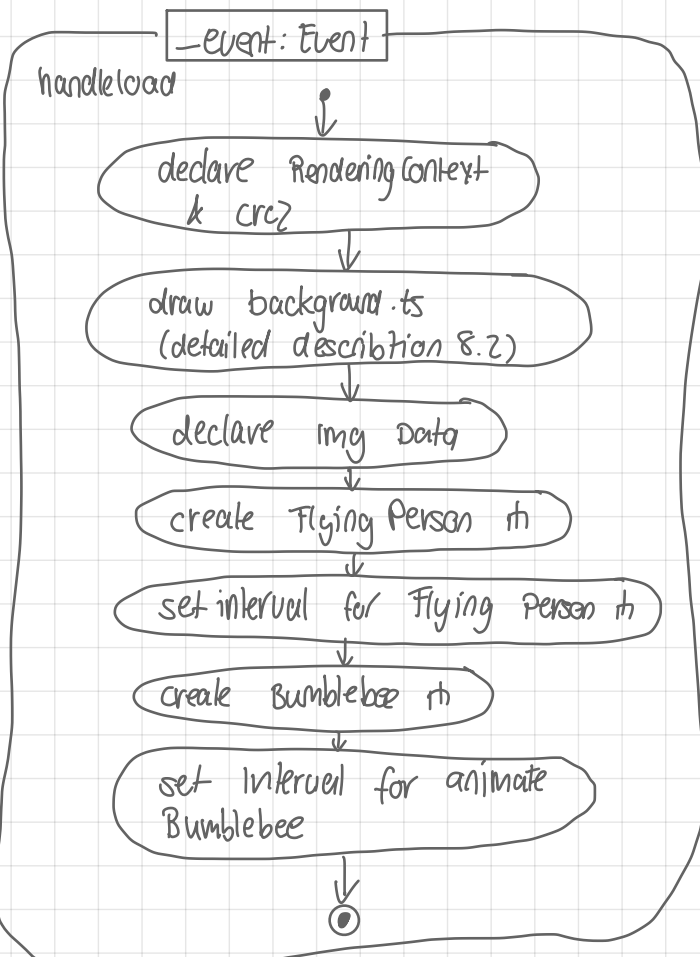 _event: Event
handleload
declare RenderingContext
& crc2
draw background.ts
(detailed describtion 8.2)
declare img Data
create Flying Person
set interval for Flying Person
create Bumblebee
set Interval for animate
Bumblebee